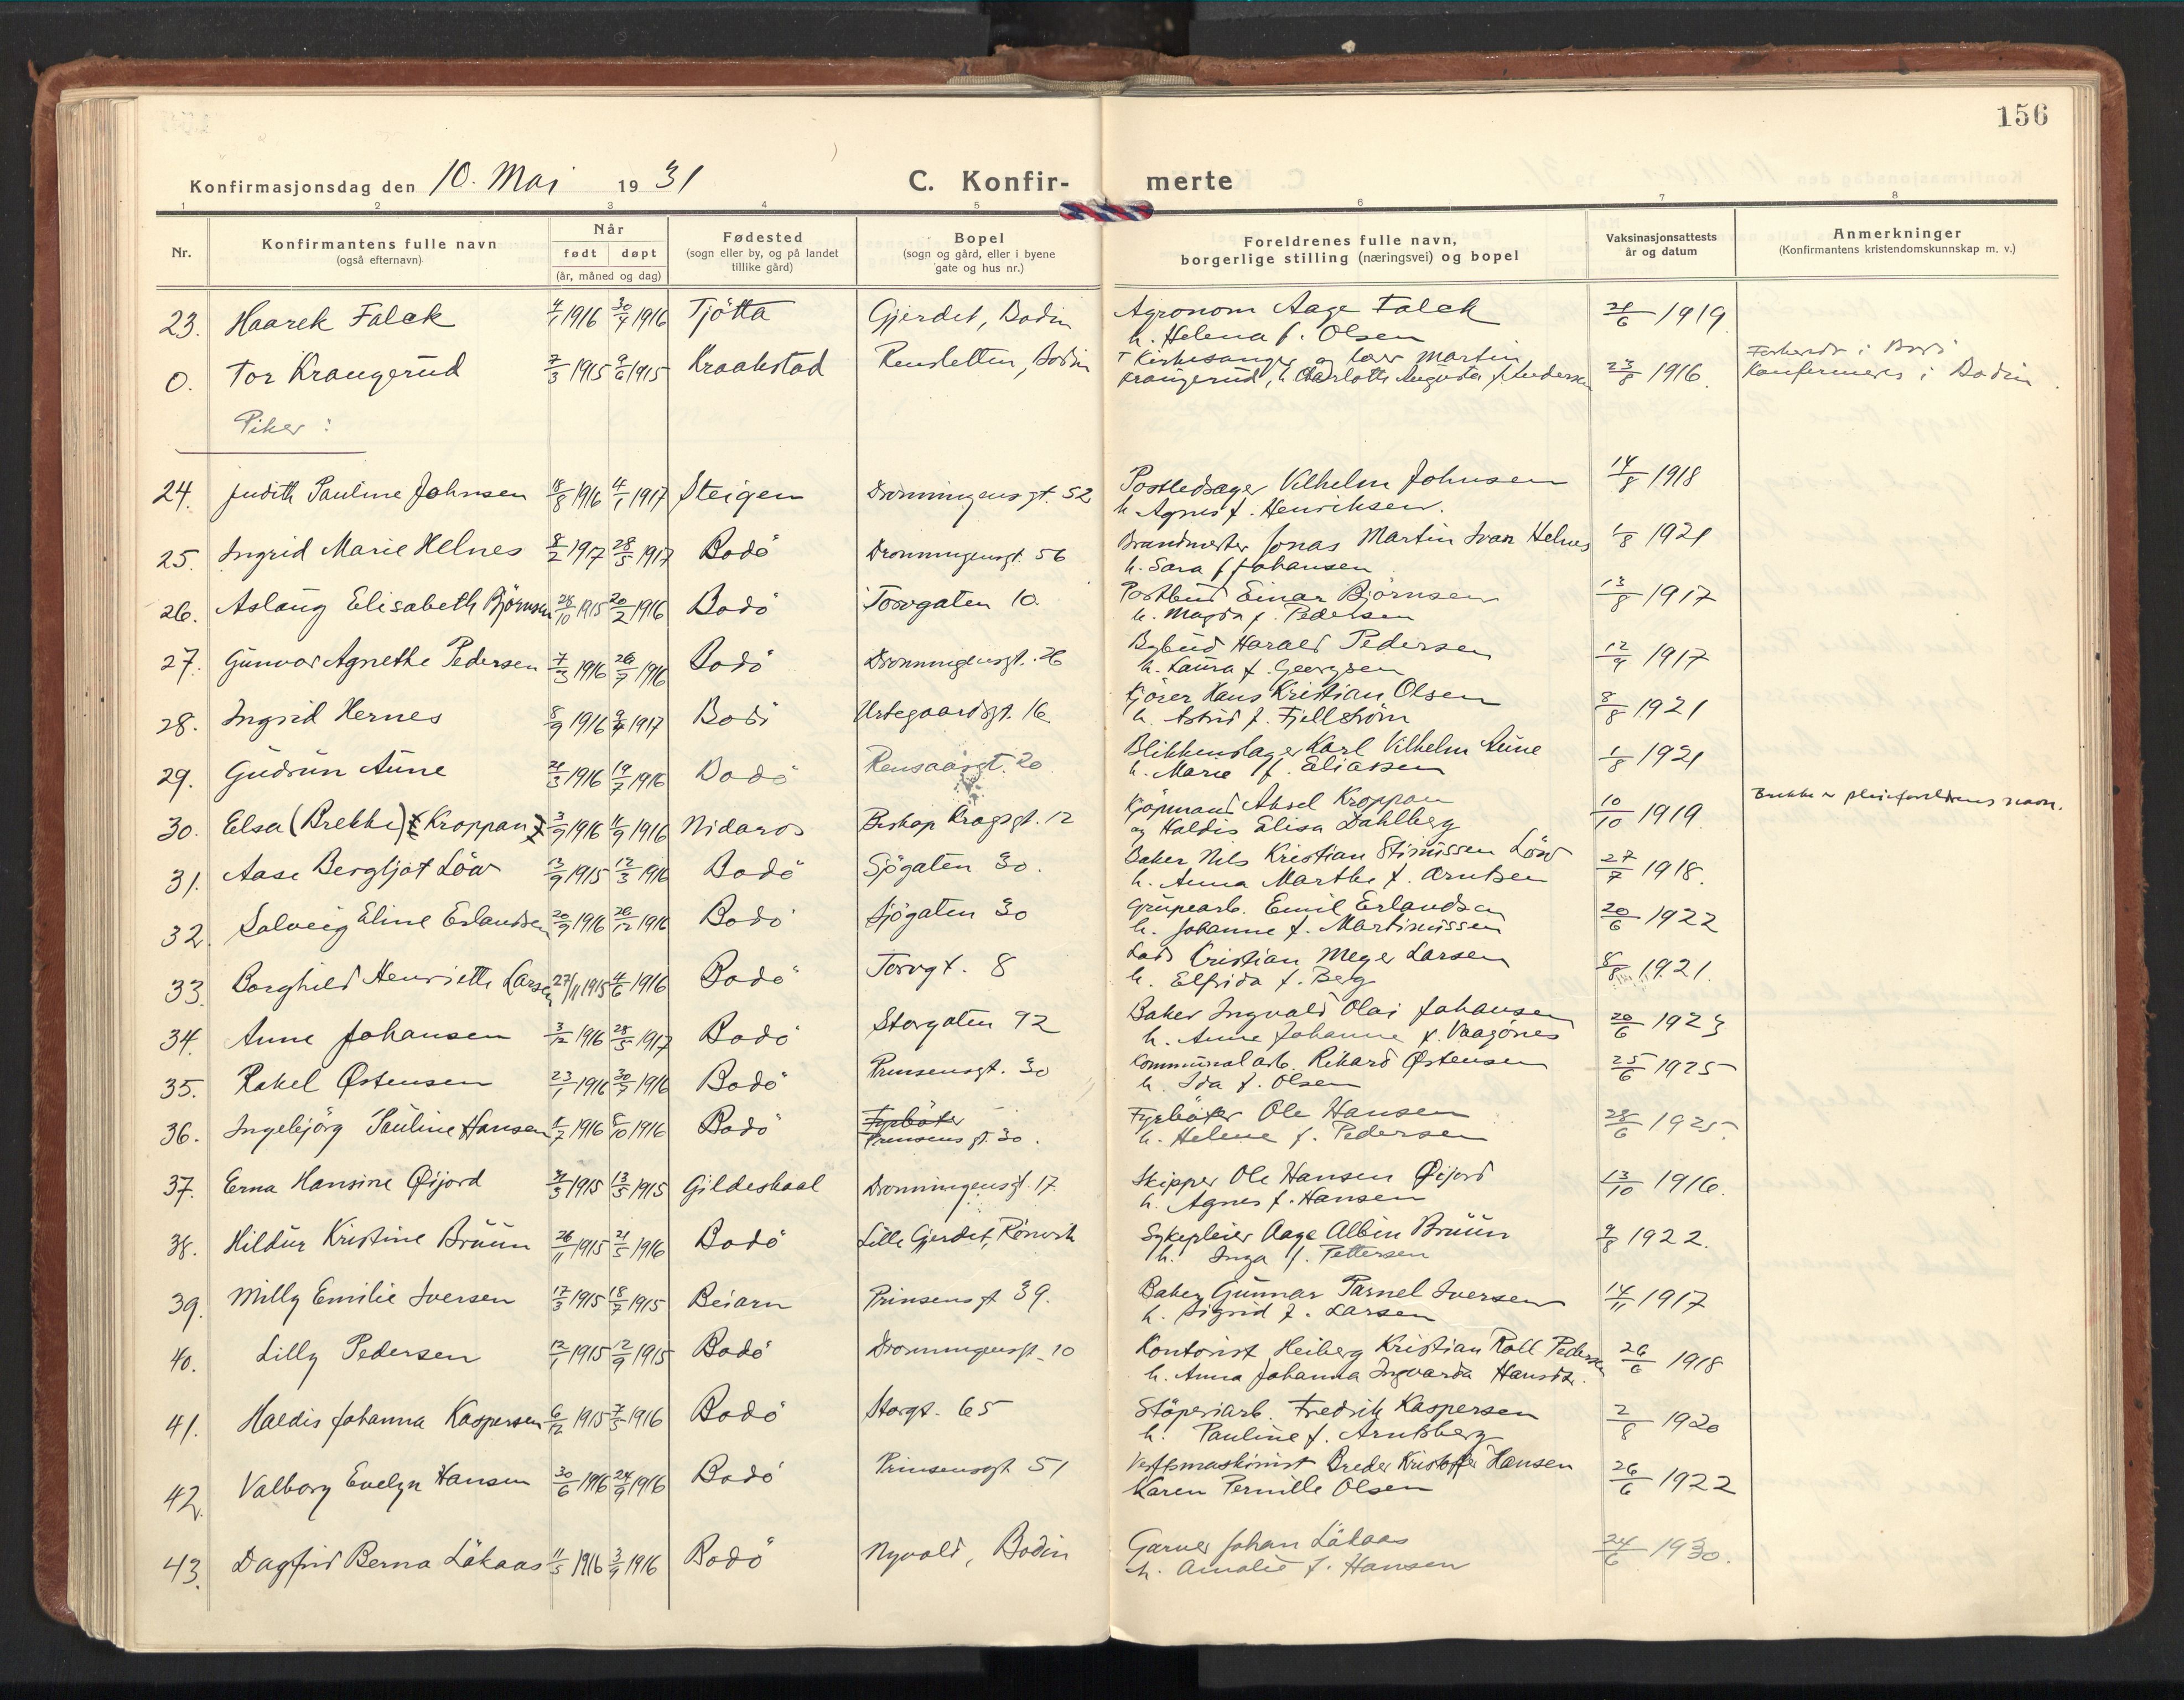 156
Konfirmasjonsdag den 10. Mai 1931 C. Konfir- merte
1 2 3 4 5 6 7 8
Nr. Konfirmantens fulle navn (også efternavn) Når født døpt (år, måned og dag) Fødested (sogn eller by, og på landet tillike gård) Bopel (sogn og gård, eller i byene gate og hus nr.) Foreldrenes fulle navn, borgerlige stilling (næringsvei) og bopel Vaksinasjonsattests år og datum Anmerkninger (Konfirmantens kristendomskunnskap m. v.)
23. Haarek Falck 4/1 1916 30/4 1916 Tjötta Gjerdet, Bodin Agronom Aage Falck 21/6 1919
h. Helena f. Olsen
0. Tor Kraugerud 7/3 1915 9/6 1915 Kraakstad Rensletten, Bodin † Kirkesanger og lærer Martin 23/8 1916 i Bodö
Kraugerud, h. Charlotte Augusta f. Andersen Konfirmeres i Bodin
Piker:
24. Judith Pauline Johnsen 18/8 1916 4/1 1917 Steigen Dronningensgt. 52 Postledsager Vilhelm Johnsen 14/8 1918
h. Agnes f. Henriksen.
25. Ingrid Marie Helnes 8/2 1917 28/5 1917 Bodö Dronningensgt. 56 Brandmester Jonas Martin Ivar Helnes 1/8 1921
h. Sara f. Johansen
26. Aslaug Elisabeth Björnsen 28/10 1915 20/2 1916 Bodö Torvgaten 10. Postbud Einar Björnsen 13/8 1917
h. Magda f. Pedersen
27. Gunvor Agnethe Pedersen 7/3 1916 26/7 1916 Bodö Dronningensgt. 26 Bybud Harald Pedersen 12/9 1917
h. Laura f. Georgsen
28. Ingrid Hernes 8/9 1916 9/4 1917 Bodö Urtegaardsgt. 16 Kjörer Hans Kristian Olsen 8/8 1921
h. Astrid f. Fjellström
29. Gudrun Aune 21/3 1916 19/7 1916 Bodö Rensaasgt. 20 Blikkenslager Karl Vilhelm Aune 1/8 1921
h. Marie f. Eliassen
30. Elsa (Brekke) Kroppan 3/9 1916 11/9 1916 Nidaros Biskop Kragsgt. 12 Kjöpmand Aksel Kroppan 10/10 1919 Brekke er pleieforeldrenes navn.
og Haldis Elisa Dahlberg
31. Aase Bergljot Löw 13/9 1915 12/3 1916 Bodö Sjögaten 30. Baker Nils Kristian Stimissen Löw 27/7 1918.
h. Anna Marthe f. Arntsen
32. Solveig Eline Erlandsen 20/9 1916 26/12 1916 Bodö Sjögaten 30 Grubearb. Emil Erlandsen 20/6 1922
h. Johanne f. Martinissen
33. Borghild Henriette Larsen 27/11 1915 4/6 1916 Bodö Torvgt. 8 Lods Cristian Meyer Larsen 8/8 1921.
h. Elfrida f. Berg
34. Anne Johansen 3/12 1916 28/5 1917 Bodö Storgaten 92 Baker Ingvald Olai Johansen 20/6 1923
h. Anne Johanne f. Vaagönes
35. Rakel Østensen 23/1 1916 30/7 1916 Bodö Prinsensgt. 30 Kommunalarb. Rikard Østensen 25/6 1925
h. Ida f. Olsen
36. Ingebjörg Pauline Hansen 1/7 1916 8/10 1916 Bodö Fyrböter Fyrböter Ole Hansen 28/6 1925.
Prinsens gt. 30. h. Helene f. Pedersen
37. Erna Hansine Øijord 31/3 1915 13/5 1915 Gildeskaal Dronningensgt. 17. Skipper Ole Hansen Øijord 13/10 1916.
h. Agnes f. Hansen
38. Hildur Kristine Bruun 26/11 1915 21/5 1916 Bodö Lille Gjerdet, Rönvik Sykepleier Aage Albin Bruun 9/8 1922.
h. Inga f. Pettersen
39. Milly Emilie Iversen 17/3 1915 18/7 1915 Beiarn Prinsensgt 39. Baker Gunnar Parnel Iversen 14/11 1917
h. Sigrid f. Larsen
40. Lilly Pedersen 12/1 1915 12/9 1915 Bodö Dronningensgt. 10 Kontorist Heiberg Kristian Roll Pedersen 26/6 1918
h. Anna Johanna Ingvarda
41. Haldis Johanna Kaspersen 6/12 1915 7/5 1916 Bodö Storgt. 65 Stöperiarb. Fredrik Kaspersen 2/8 1920
h. Pauline f. Arntsberg
42. Valborg Evelyn Hansen 30/6 1916 24/9 1916 Bodö Prinsensgt 51 Breder Kristoffer Hansen 26/6 1922
Karen Pernille Olsen
43. Dagfrid Berna Låkaas 11/5 1916 3/9 1916 Bodö Nyvold, Bodin Garver Johan Låkaas 24/6 1930.
h. Amalie f. Hansen